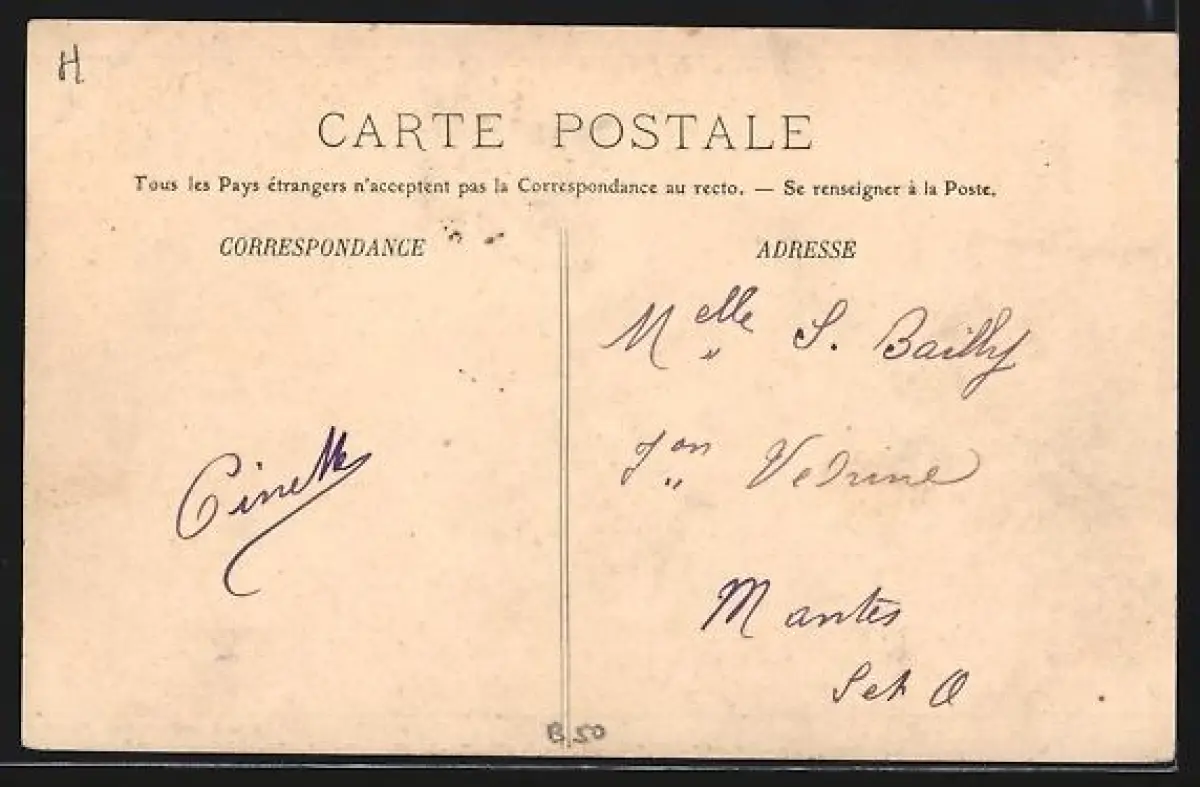 H
CARTE POSTALE
Tous les Pays étrangers n'acceptent pas la Correspondance au recto. — Se renseigner à la Poste.
CORRESPONDANCE
ADRESSE
Melle S. Bailly
Pon Vedrine
Mantes
S et O
B 50